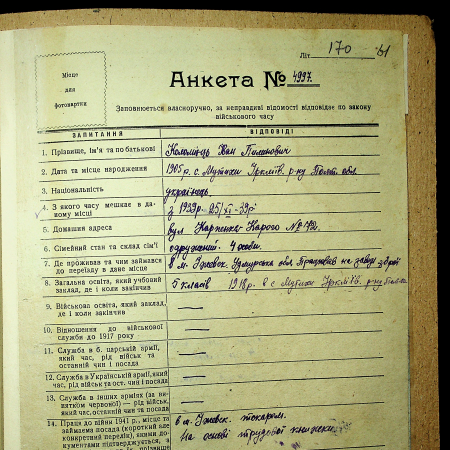 Літ 170 61
Місце
для
фотокартки
Анкета № 4997.
Заповнюється власноручно, за неправдиві відомості відповідає по закону
військового часу
ЗАПИТАННЯ ВІДПОВІДІ
1. Прізвище, ім'я та по батькові Коломієць Іван Пиманович
2. Дата та місце народження 1905 р. с. Мутихи Іркліїв. р-ну Полт. обл.
3. Національність українець
4. З якого часу мешкає в да-
ному місці з 1939р. 25/XI-39р
5. Домашня адреса вул Карпенка-Карого № 42.
6. Сімейний стан та склад сім'ї одружений. 4 особи.
7. Де проживав та чим займався
до переїзду в дане місце в м. Іжевск. Удмурська обл. Працював на заводі зброї
8. Загальна освіта, який учбовий
заклад, де і коли закінчив 5 класів 1918р. в с Мутихи Іркліїв. р-ну
9. Військова освіта, який заклад,
де і коли закінчив —
10. Відношення до військової
служби до 1917 року —
11. Служба в б. царській армії,
який час, рід військ та
останній чин і посада —
12. Служба в Українській армії, який
час, рід військ та ост. чин і посада —
13. Служба в інших арміях (за ви-
нятком червоної) — рід військ,
який час, останній чин та посада —
14. Праця до війни 1941 р., місце та
займаєма посада (короткий але
конкретний перелік), якими до-
кументами підтверджується, в м. Іжевск. токарем.
На основі трудової книжки